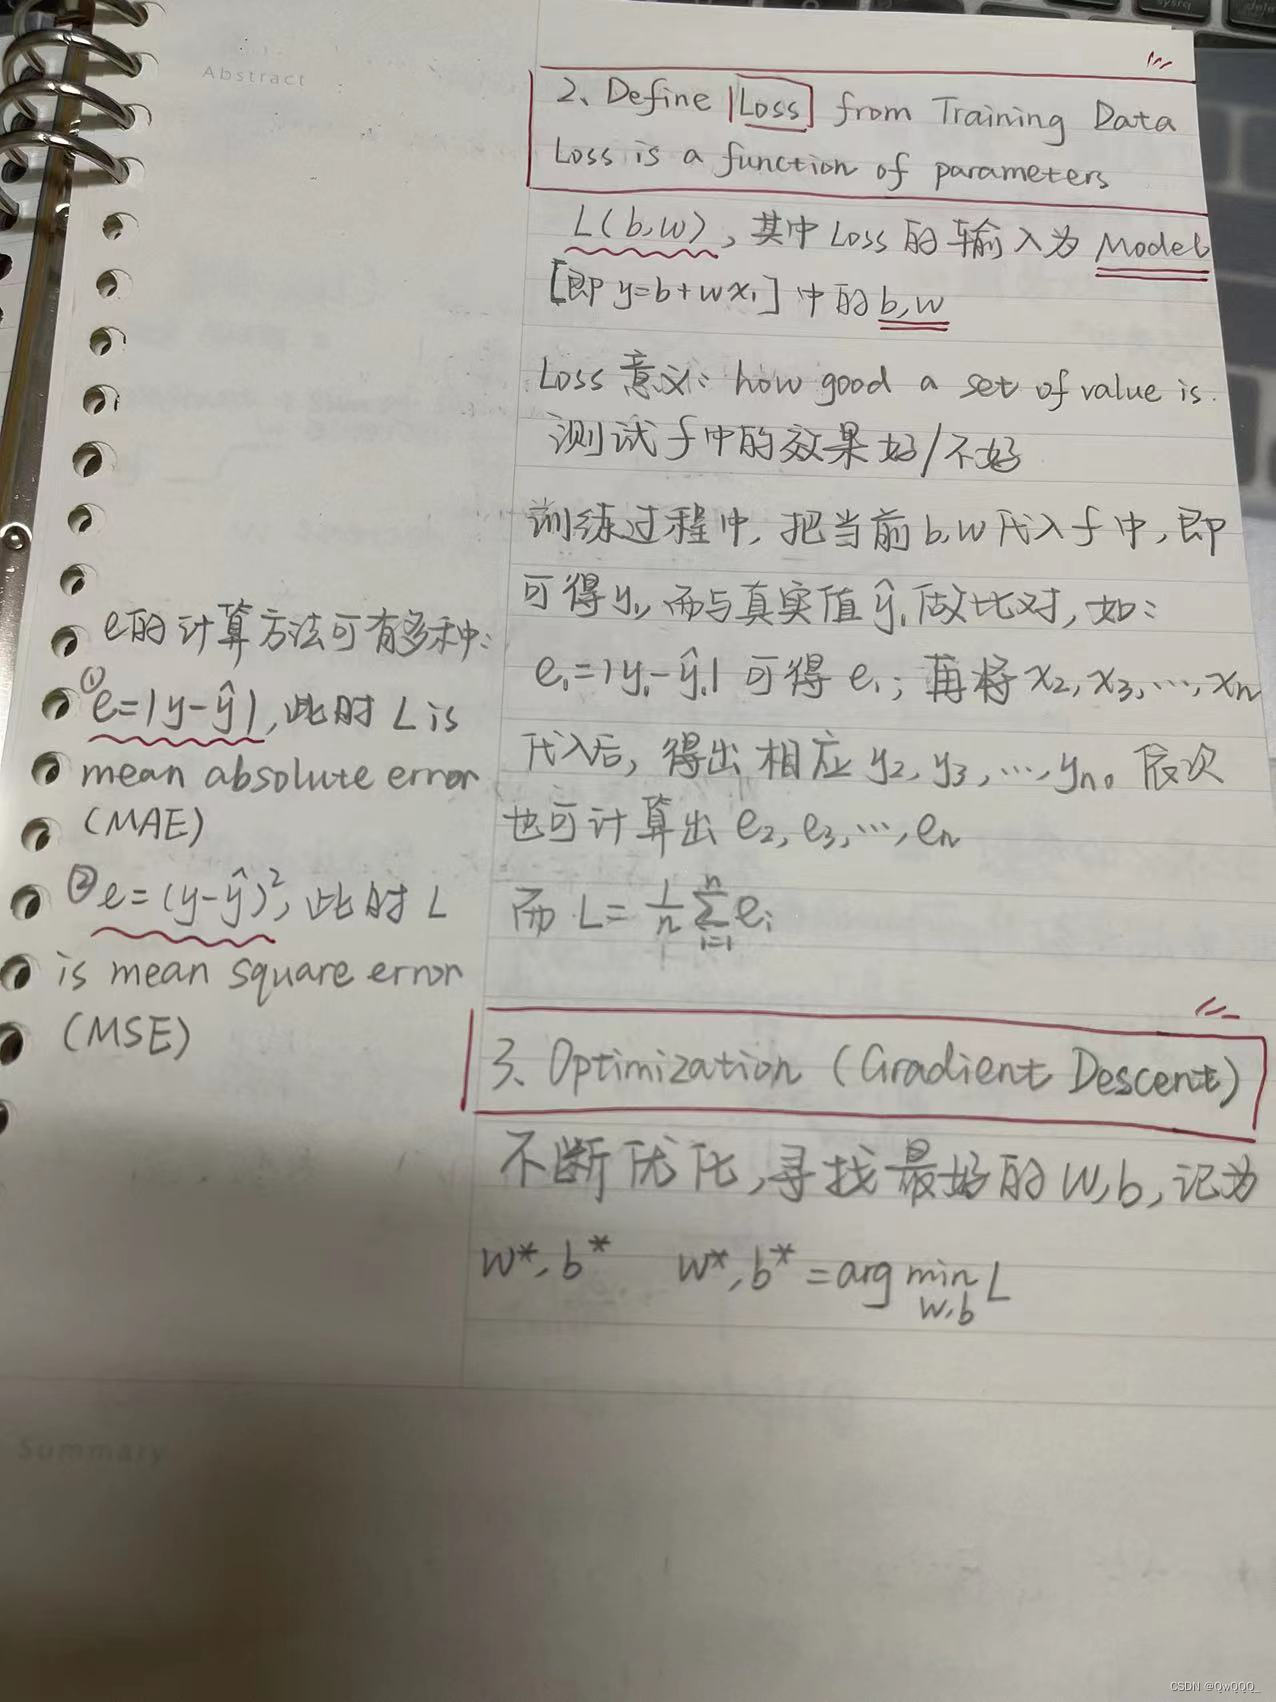 Abstract
2、Define Loss from Training Data
Loss is a function of parameters
L(b,w),其中Loss的输入为Model
[即y=b+wx₁]中的b,w
Loss意义: how good a set of value is.
测试f中的效果好/不好
训练过程中,把当前b,w代入f中,即
可得y₁,而与真实值ŷ₁做比对,如:
e₁=|y₁-ŷ₁|可得e₁;再将x₂,x₃,…,xn
代入后,得出相应y₂,y₃,…,yn。依次
也可计算出e₂,e₃,…,en
而L=1/n Σ(i=1→n) eᵢ
e的计算方法可有多种:
①e=|y-ŷ|,此时L is
mean absolute error
(MAE)
②e=(y-ŷ)²,此时L
is mean square error
(MSE)
3、Optimization (Gradient Descent)
不断优化,寻找最好的w,b,记为
w*,b* w*,b*=arg min L
w,b
Summary
CSDN @QwQQQ_